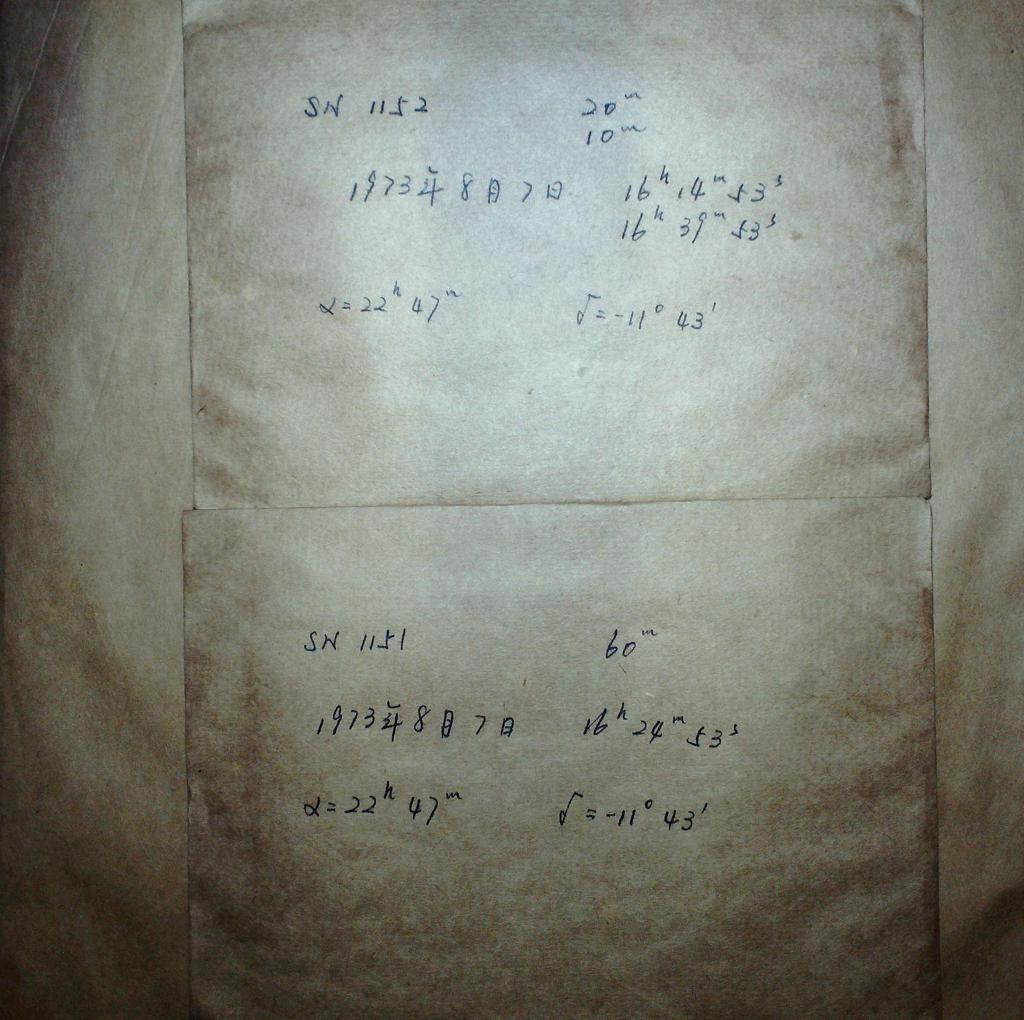 SN 1152 20ᵐ
10ᵐ
1973年8月7日 16ʰ 14ᵐ 53ˢ
16ʰ 39ᵐ 53ˢ
α=22ʰ 47ᵐ δ=-11° 43′
SN 1151 60ᵐ
1973年8月7日 16ʰ 24ᵐ 53ˢ
α=22ʰ 47ᵐ δ=-11° 43′